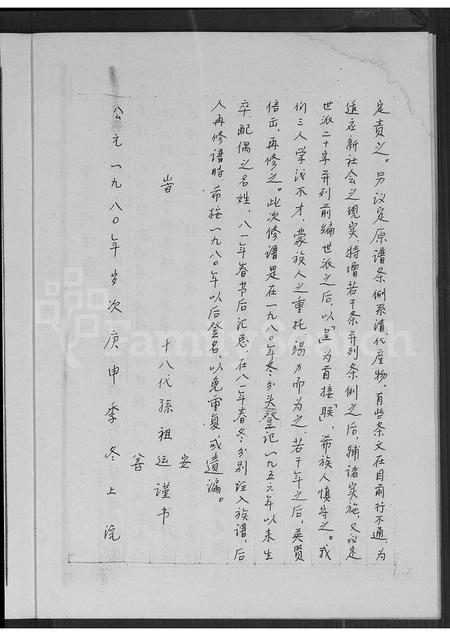 定责之。另议定原谱条例系清代产物，有些条文在目前行不通，为
适应新社会之现实，特增若干条并列条例之后，辅诸实施，又议定
世派二十字并列前编世派之后，以「呈」为首接联，希族人慎守之。我
们三人学浅不才，蒙族人之重托竭力而为之，若干年之后，英贤
倍出，再修之。此次修谱是在一九八〇年冬分头登记一九五六年以来生
卒、配偶之名姓，八一年春节后汇总，在八一年春冬分别注入族谱，后
人再修谱时，希按一九八〇年以后登名，以免重复或遗漏。
安
十八代孙祖运谨书
善
公元一九八〇年岁次庚申季冬上浣
FamilySearch